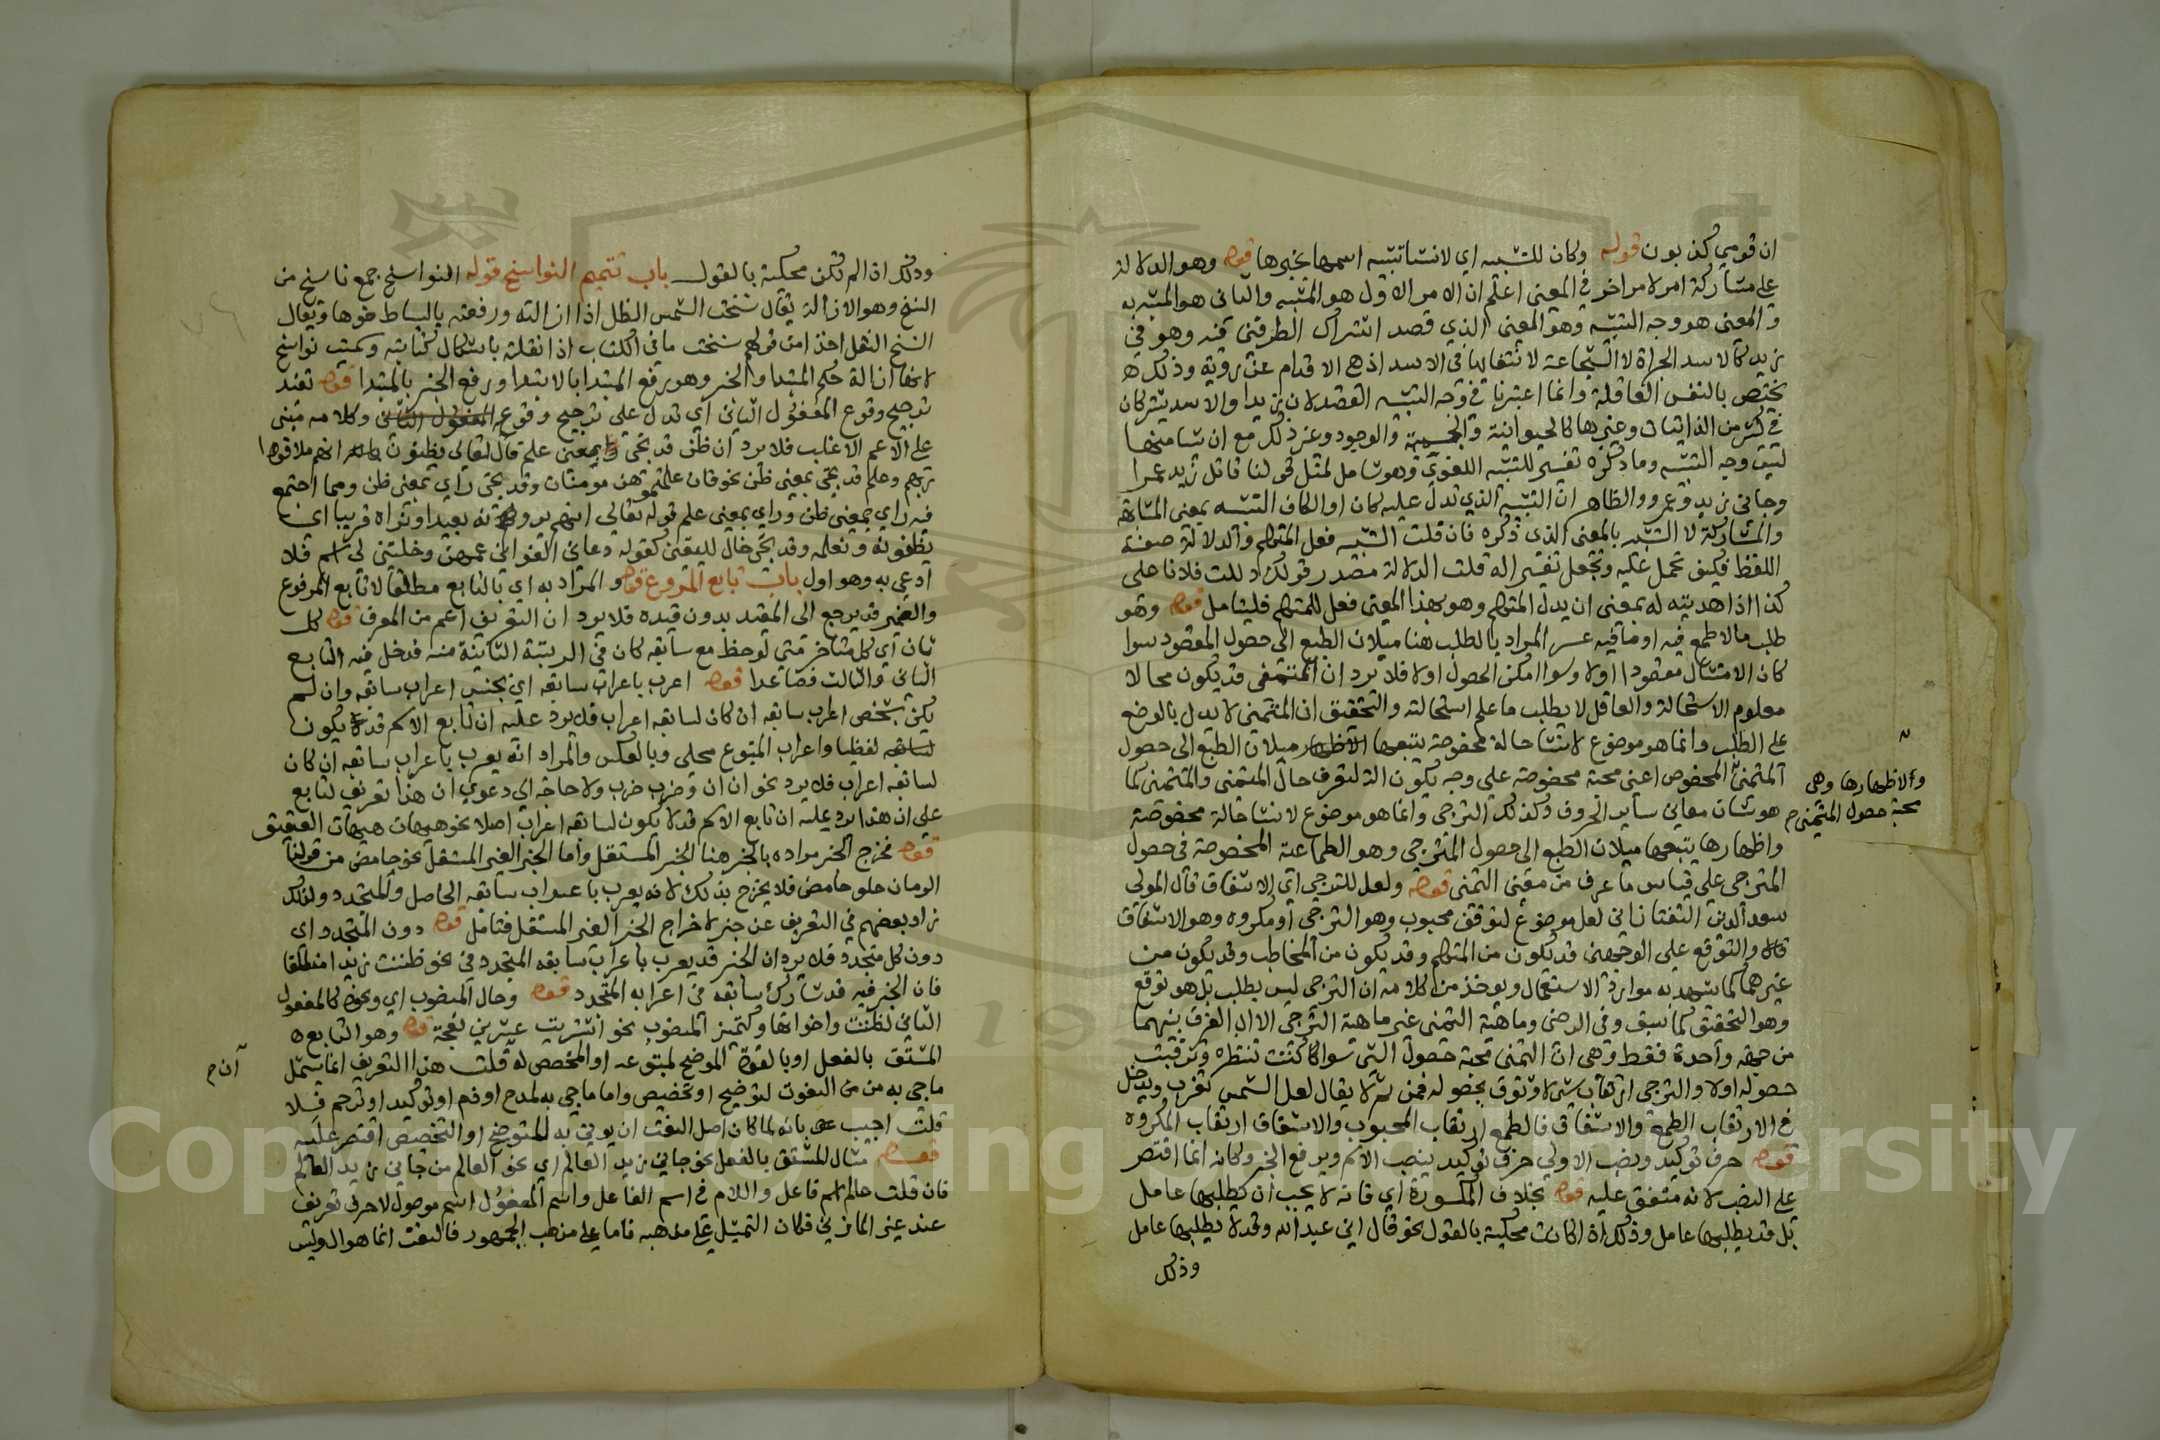 ان قومي كذبون قوله وكان للتشبيه اي لانشا تشبيه اسمها بخبرها قوله وهو الدلالة
على مشاركة امر لامر اخر في المعنى اعلم ان الامر الاول هو المشبه والثاني هو المشبه به
والمعنى هو وجه التشبيه وهو المعنى الذي قصد اشتراك الطرفين فيه وهو في
زيد كالاسد الجراة لا الشجاعة لانتفائها في الاسد اذ هي الاقدام عن روية وذلك
يختص بالنفس العاقلة وانما اعتبرنا في وجه التشبيه القصد لان زيدا والاسد يشتركان
في كثير من الذاتيات وغيرها كالحيوانية والجسمية والوجود وغير ذلك مع ان شا منها
ليس وجه التشبيه وما ذكره تفسير للتشبيه اللغوي وهو شامل لمثل قولنا قاتل زيد عمرا
وجاني زيد وعمرو والظاهر ان التشبيه الذي تدل عليه كان او الكاف التشبيه بمعنى المشابهة
والمشاركة لا التشبيه بالمعنى الذي ذكره فان قلت التشبيه فعل المتكلم والدلالة صفة
اللفظ فكيف تحمل عليه وتجعل تفسيرا له قلت الدلالة مصدر قولك دللت فلانا على
كذا اذا هديته له بمعنى ان يدل المتكلم وهو بهذا المعنى فعل للمتكلم فليتامل قوله وهو
طلب مالا طمع فيه او ما فيه عسر المراد بالطلب هنا ميلان الطبع الى حصول المقصود سوا
كان الامتثال مقصودا اولا وسوا امكن الحصول اولا فلا يرد ان المتمنى قد يكون محالا
معلوم الاستحالة والعاقل لا يطلب ما علم استحالته والتحقيق ان المتمني لا يدل بالوضع
على الطلب وانما هو موضوع لانشا حالة مخصوصة يتبعها ميلان الطبع الى حصول
المتمنى المخصوص اعنى محبة مخصوصة على وجه يكون
هو شان معاني ساير الحروف وكذلك الترجي وانما هو موضوع لانشا حالة مخصوصة
واظهارها يتبعها ميلان الطبع الى حصول المترجى وهو الطماعة المخصوصة في حصول
المترجى على قياس ما عرف من معنى التمنى قوله ولعل للترجي اي الاشفاق قال المولى
سعد الدين التفتازاني لعل موضوع لتوقع محبوب وهو الترجي او مكروه وهو الاشفاق
قال والتوقع على الوجهين قد تكون من المتكلم وقد تكون من المخاطب وقد تكون من
غيرهما كما شهد به موارد الاستعمال ويوخذ من كلامه ان الترجي ليس بطلب بل هو توقع
وهو التحقيق كما سبق وفي الرضى وماهية التمنى غير ماهية الترجي الا ان الفرق بينهما
من جهة واحدة فقط وهي ان التمنى محبة حصول الشي سوا كنت تنتظره وترقب
حصوله اولا والترجي ارتقاب شي لا وثوق بحصوله فمن ثم لا يقال لعل الشمس تغرب ويدخل
في الارتقاب الطمع والاشفاق فالطمع ارتقاب المحبوب والاشفاق ارتقاب المكروه
قوله حرف توكيد ونصب الاولى حرف توكيد ينصب الاسم ويرفع الخبر وكانه انما اقتصر
على النصب لانه متفق عليه قوله بخلاف المكسورة اي فانه لا يجب ان يطلبها عامل
بل قد يطلبها عامل وذلك اذا كانت محكية بالقول نحو قال اني عبد الله وقد لا يطلبها عامل
وذلك
والاظهارها وهي
محبة حصول المتمنى
وذلك اذا لم تكن محكية بالقول باب تتميم النواسخ قوله النواسخ جمع ناسخ من
النسخ وهو الازالة يقال نسخت الشمس الظل اذا ازالته ورفعته بانبساط ضوها ويقال
النسخ النقل اخذا من قولهم نسخت ما في الكتاب اذا نقلته باشكال كتابته وسميت نواسخ
لانها ازالة حكم المبتدا والخبر وهو رفع المبتدا بالابتدا ورفع الخبر بالمبتدا قوله تفيد
ترجيح وقوع المفعول الثاني اي تدل على ترجيح وقوع المفعول الثاني وكلامه مبنى
على الاعم الاغلب فلا يرد ان ظن قد تجي بمعنى علم قال تعالى يظنون انهم ملاقوا
ربهم وعلم قد تجي بمعنى ظن نحو فان علمتموهن مومنات وقد تجي راي بمعنى ظن ومما اجتمع
فيه راي بمعنى ظن وراي بمعنى علم قوله تعالى انهم يرونه بعيدا ونراه قريبا اي
يظنونه ونعلمه وقد تجي خال لليقين كقوله دعاني الغواني عمهن وخلتني لي اسم فلا
ادعى به وهو اول باب تابع المرفوع قوله والمراد به اي بالتابع مطلقا لا تابع المرفوع
والضمير قد يرجع الى المقيد بدون قيده فلا يرد ان التعريف اعم من المعرف قوله كل
ثان اي كل متاخر متى لوحظ مع سابقه كان في الرتبة الثانية منه فدخل فيه التابع
الثاني والثالث فصاعدا قوله اعرب باعراب سابقه اي بجنس اعراب سابقه وان لم
يكن بشخص اعراب سابقه ان كان لسابقه اعراب فلا يرد عليه ان تابع الاسم قد لا يكون
لسابقه لفظيا واعراب المتبوع محلي وبالعكس والمراد انه يعرب باعراب سابقه ان كان
لسابقه اعراب فلا يرد نحو ان ان وضرب ضرب ولا حاجة الى دعوي ان هذا تعريف لتابع
على ان هذا يرد عليه ان تابع الاسم قد لا يكون لسابقه اعراب اصلا نحو هيهات هيهات العقيق
قوله مخرج الخبر مراده بالخبر هنا الخبر المستقل واما الخبر الغير المستقل نحو حامض من قولنا
الرمان حلو حامض فلا يخرج بذلك لانه يعرب باعراب سابقه الحاصل والمتجدد ولذلك
زاد بعضهم في التعريف غير خبر لاخراج الخبر الغير المستقل فتامل قوله دون المتجدد اي
دون كل متجدد فلا يرد ان الخبر قد يعرب باعراب سابقه المتجدد في نحو ظننت زيدا منطلقا
فان الخبر فيه قد شارك سابقه في اعرابه المتجدد قوله وحال المنصوب اي ونحوه كالمفعول
الثاني لظننت واخواتها وكتميز المنصوب نحو اشتريت عشرين نعجة قوله وهو التابع
المشتق بالفعل او بالقوة الموضح لمتبوعه او المخصص له قلت هذا التعريف انما شمل
ماجي به من النعوت لتوضيح او تخصيص واما ماجي به لمدح او ذم او توكيد او ترحم فلا
قلت اجيب بانه لما كان اصل النعت ان يوتى به للتوضيح او التخصيص اقتصر عليه
قوله مثال المشتق بالفعل نحو جاني زيد العالم اي نحو العالم من جاني زيد العالم
فان قلت عالم اسم فاعل واللام في اسم الفاعل واسم المفعول اسم موصول لا حرف تعريف
عند غير المازني فكان التمثيل على مذهبه فاما على مذهب الجمهور فالنعت انما هو ال وليس